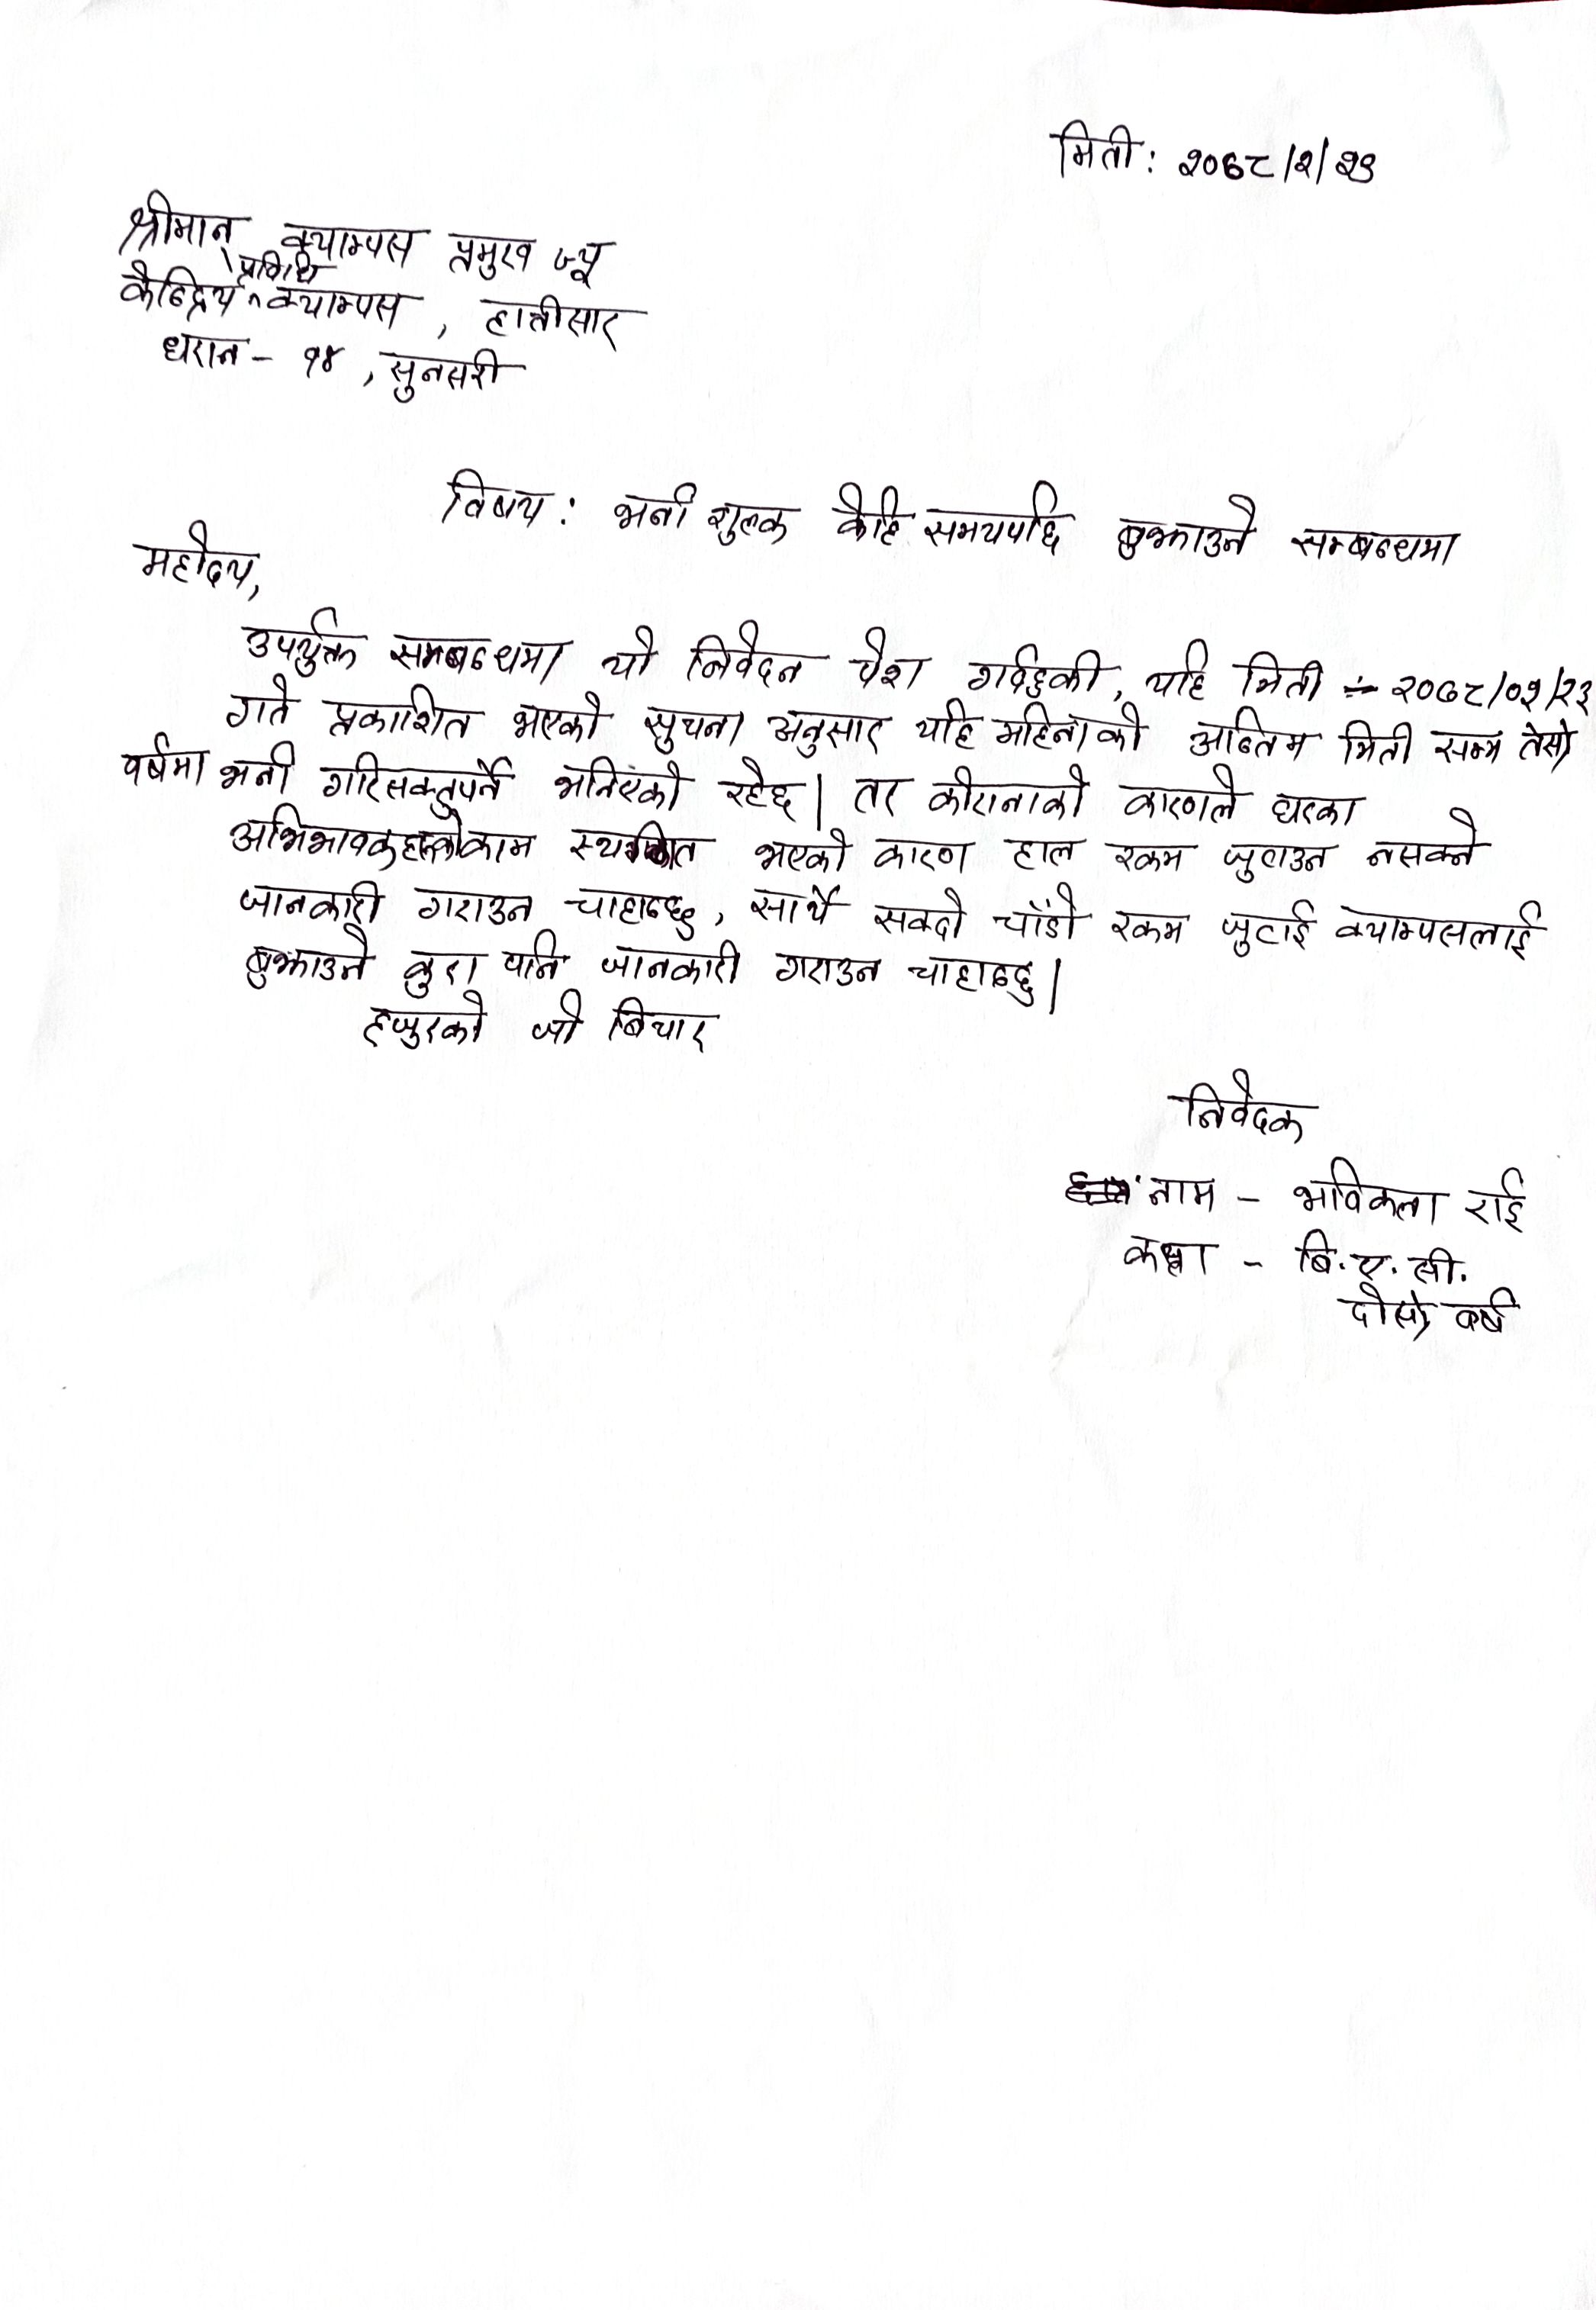 मिती: २०७८/२/२३
श्रीमान् क्याम्पस प्रमुख ज्यू
प्रविधि
केन्द्रिय क्याम्पस, हात्तीसार
धरान - १४, सुनसरी
विषय: भर्ना शुल्क केहि समयपछि बुझाउने सम्बन्धमा
महोदय,
उपर्युक्त सम्बन्धमा यो निवेदन पेश गर्दछुकी, यहि मिती ÷ २०७८/०२/२३
गते प्रकाशित भएको सुचना अनुसार यहि महिनाको अन्तिम मिती सम्म तेस्रो
वर्षमा भर्ना गरिसक्नुपर्ने भनिएको रहेछ। तर कोरानाको कारणले घरका
अभिभावकहरुकोकाम स्थगित भएको कारण हाल रकम जुटाउन नसक्ने
जानकारी गराउन चाहान्छु, साथै सक्दो चाँडो रकम जुटाई क्याम्पसलाई
बुझाउने कुरा पनि जानकारी गराउन चाहान्छु।
हजुरको जो बिचार
निवेदक
नाम - भविकला राई
कक्षा - बि.ए.सी.
दोस्रो वर्ष